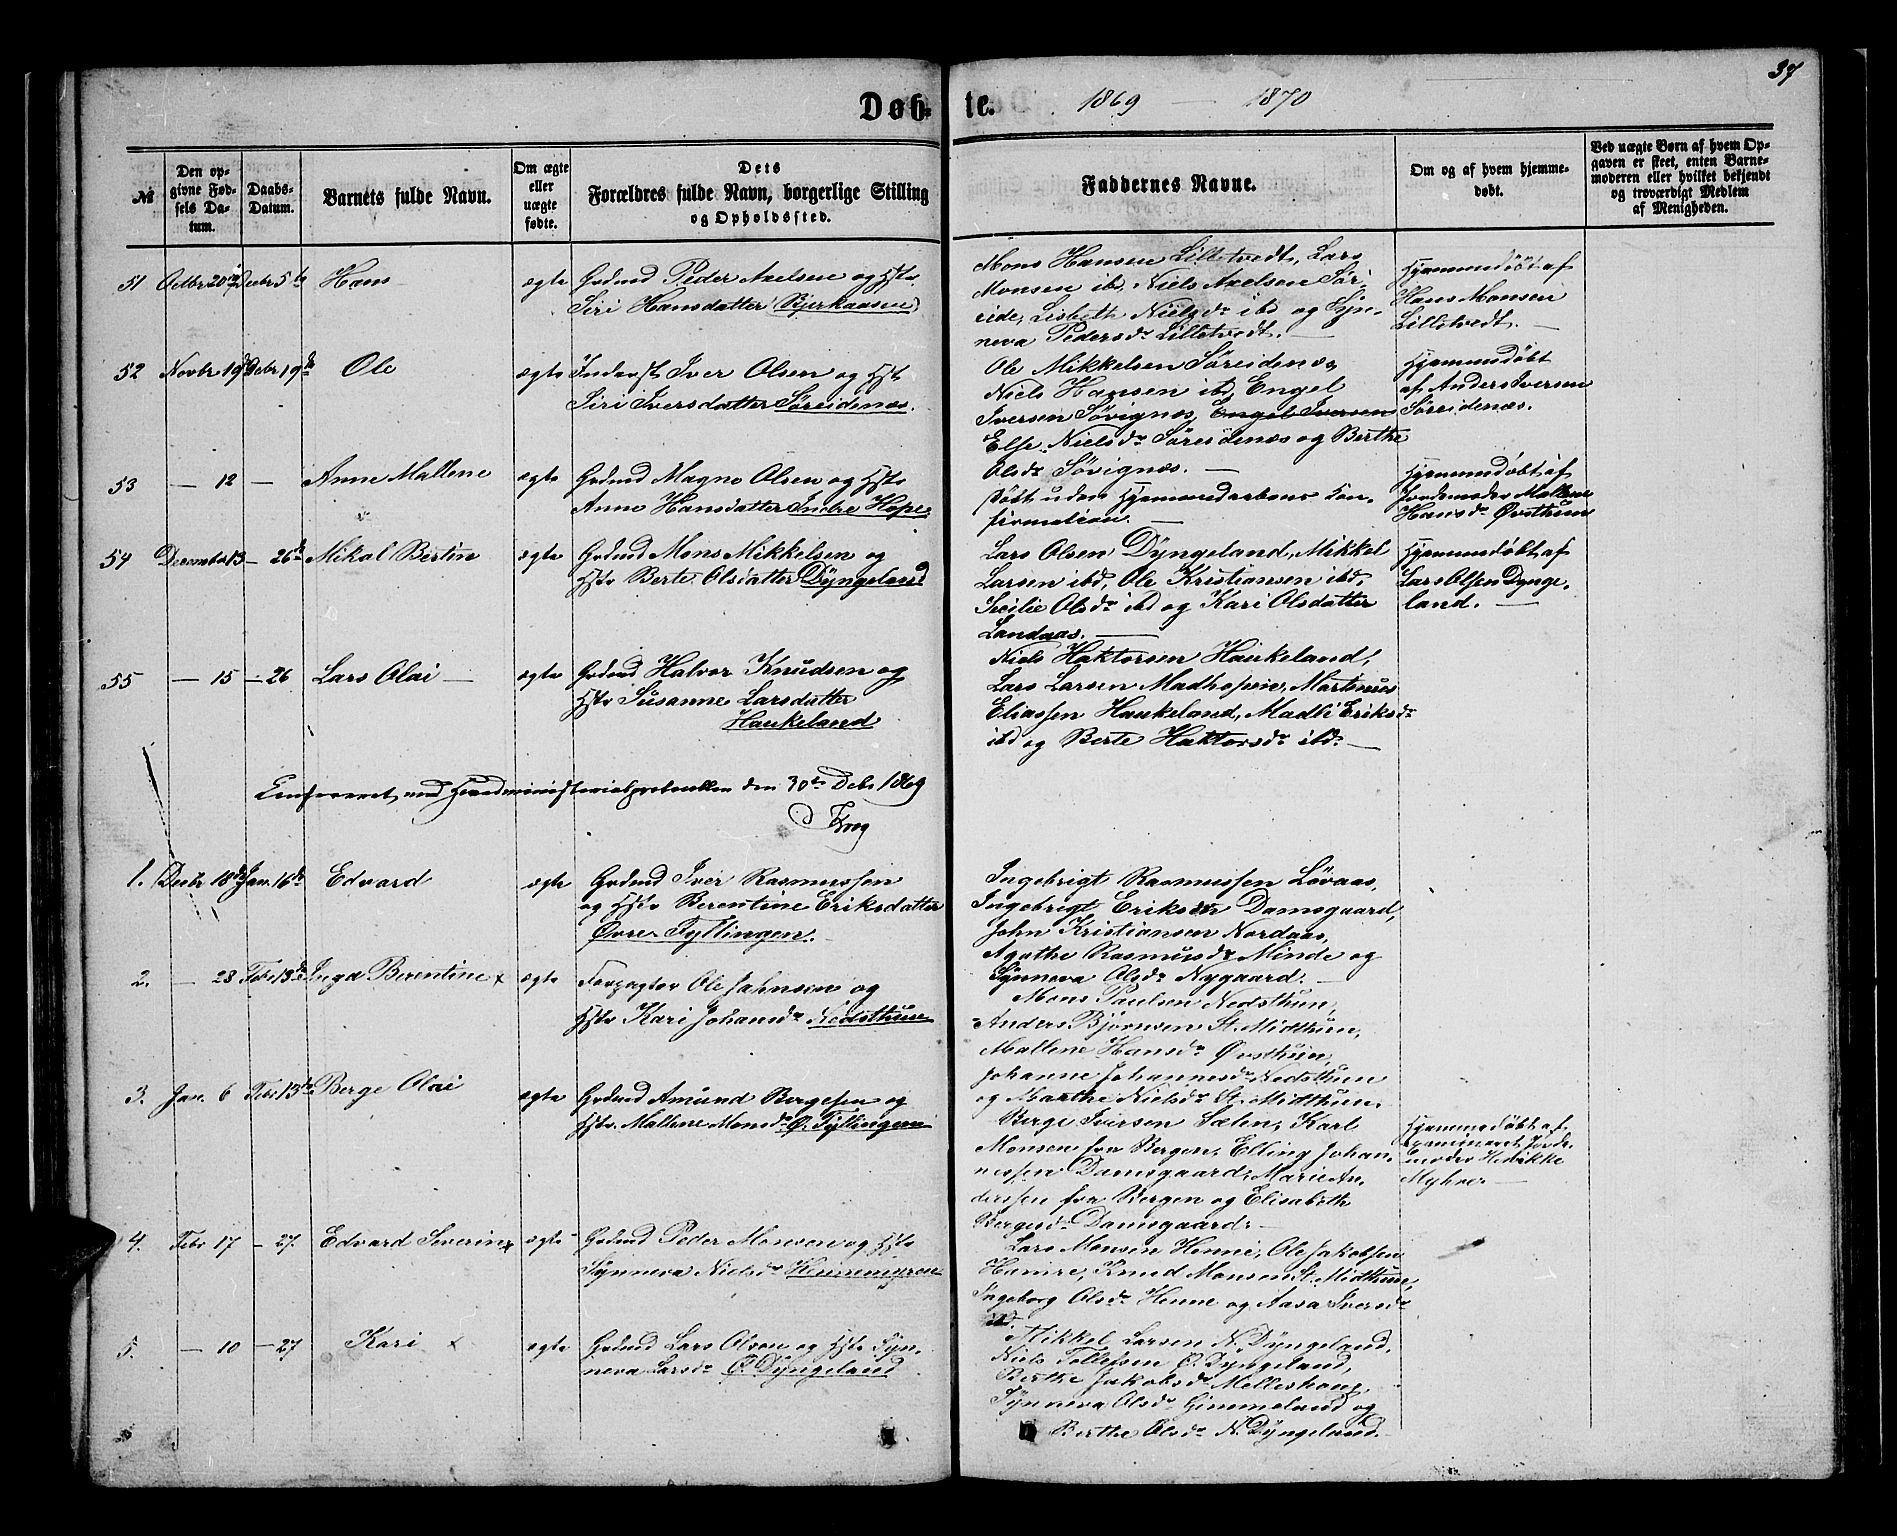 37
Døb- te. 1869 — 1870
№
Den opgivne Fødsels Datum.
Daabs-Datum.
Barnets fulde Navn.
Om ægte eller uægte fødte.
Dets Forældres fulde Navn, borgerlige Stilling og Opholdssted.
Faddernes Navne.
Om og af hvem hjemmedøbt.
Ved uægte Børn af hvem Opgaven er skeet, enten Barnemoderen eller hvilket bekjendt og troværdigt Medlem af Menigheden.
51 Octbr 20 Decbr 5te Hans ægte Grdmd Peder Axelsen og Hstr
Siri Hansdatter (Bjerkaasen)
Mons Hansen Lilletvedt, Lars
Monsen ibd, Niels Axelsen Søri
reide, Lisbeth Nielsdr ibd og Syn-
neva Pedersdr Lilletvedt.
Hjemmedøbt af
Hans Monsen
Lilletvedt. —
52 Novbr 19 Decbr 19de Ole ægte Inderst Iver Olsen og Hst
Siri Iversdatter Søreidenæs.
Ole Mikkelsen Søreidenæs
Niels Hansen ibd, Engel
Iversen Søvignæs, Engel Iversen
Else Nielsdr Søreidenæs og Berthe
Olsdr Søvignæs. —
Hjemmedøbt
af Anders Iversen
Søreidenæs.
53 — 12 — Anne Mallene ægte Grdmd Magne Olsen og Hstr
Anne Hansdatter Indre Hope.
Død uden Hjemmedaabens Con-
firmation. —
Hjemmedøbt af
Jordemoder Mallene
Hansdr Øvsthun
54 December 13 — 26de Mikal Bertin ægte Grdmd Mons Mikkelsen og
Hstr Berte Olsdatter Dyngeland
Lars Olsen Dyngeland, Mikkel
Larsen ibd, Ole Kristiansen ibd,
Secilie Olsdr ibd og Kari Olsdatter
Landaas. —
Hjemmedøbt af
Lars Olsen Dynge-
land. —
55 — 15 — 26 Lars Olai — ægte Grdmd Halvor Knudsen og
Hstr Susanne Larsdatter
Haukeland
Niels Haktorsen Haukeland,
Lars Larsen Madhopsie, Martinus
Eliassen Haukeland, Madli Eriksdr
ibd og Berte Haktorsdr ibd. —
Confereret med Hovedministerialprotocollen den 30te Debr 1869
Krog
1. Decbr 18de Jan. 16de Edvard ægte Grdmd Iver Rasmussen
og Hstr Berentine Eriksdatter
Øvre Fyllingen.
Ingebrigt Rasmussen Løvaas,
Ingebrigt Eriksen Damsgaard,
John Kristiansen Nordaas,
Agathe Rasmusdr Minde og
Synneva Olsdr Nygaard. —
2. — 28 Febr 13de Inga Berentine x ægte Forpagter Ole Johnsen og
Hstr Kari Johansdr Nedsthun
Mons Paulsen Nedsthun,
Anders Bjørnsen St. Midthun,
Mallene Hansdr Øvsthun,
Johanne Johannesdr Nedsthun
og Marthe Nielsdr St. Midthun.
3. Jan. 6 Febr 13de Berge Olai ægte Grdmd Amund Bergesen og
Hstr. Mallene Monsdr Ø. Fyllingen
Berge Iversen Sælen, Karl
Monsen fra Bergen, Elling Johan-
nessen Damsgaard, Marie An-
dersen fra Bergen og Elisabeth
Bergesdr Damsgaard. —
Hjemmedøbt af
examineret Jorde-
moder
Myhre. —
4. Febr 17 — 27. Edvard Severin x ægte Grdmd Peder Monsen og Hstr
Synneva Nielsdr Hennemyren
Lars Monsen Henne, Ole Jakobsen
Hamre, Knud Monsen St. Midthun,
Ingeborg Olsdr Henne og Aasa Iversdr
ibd.
5. — 10 — 27 Kari x ægte Grdmd Lars Olsen og Hstr Syn-
neva Larsdr Ø. Dyngeland
Mikkel Larsen N. Dyngeland,
Niels Tollefsen Ø. Dyngeland,
Berthe Jakobsdr Melleshoug,
Synneva Olsdr Gimmeland og
Berthe Olsdr N. Dyngeland.